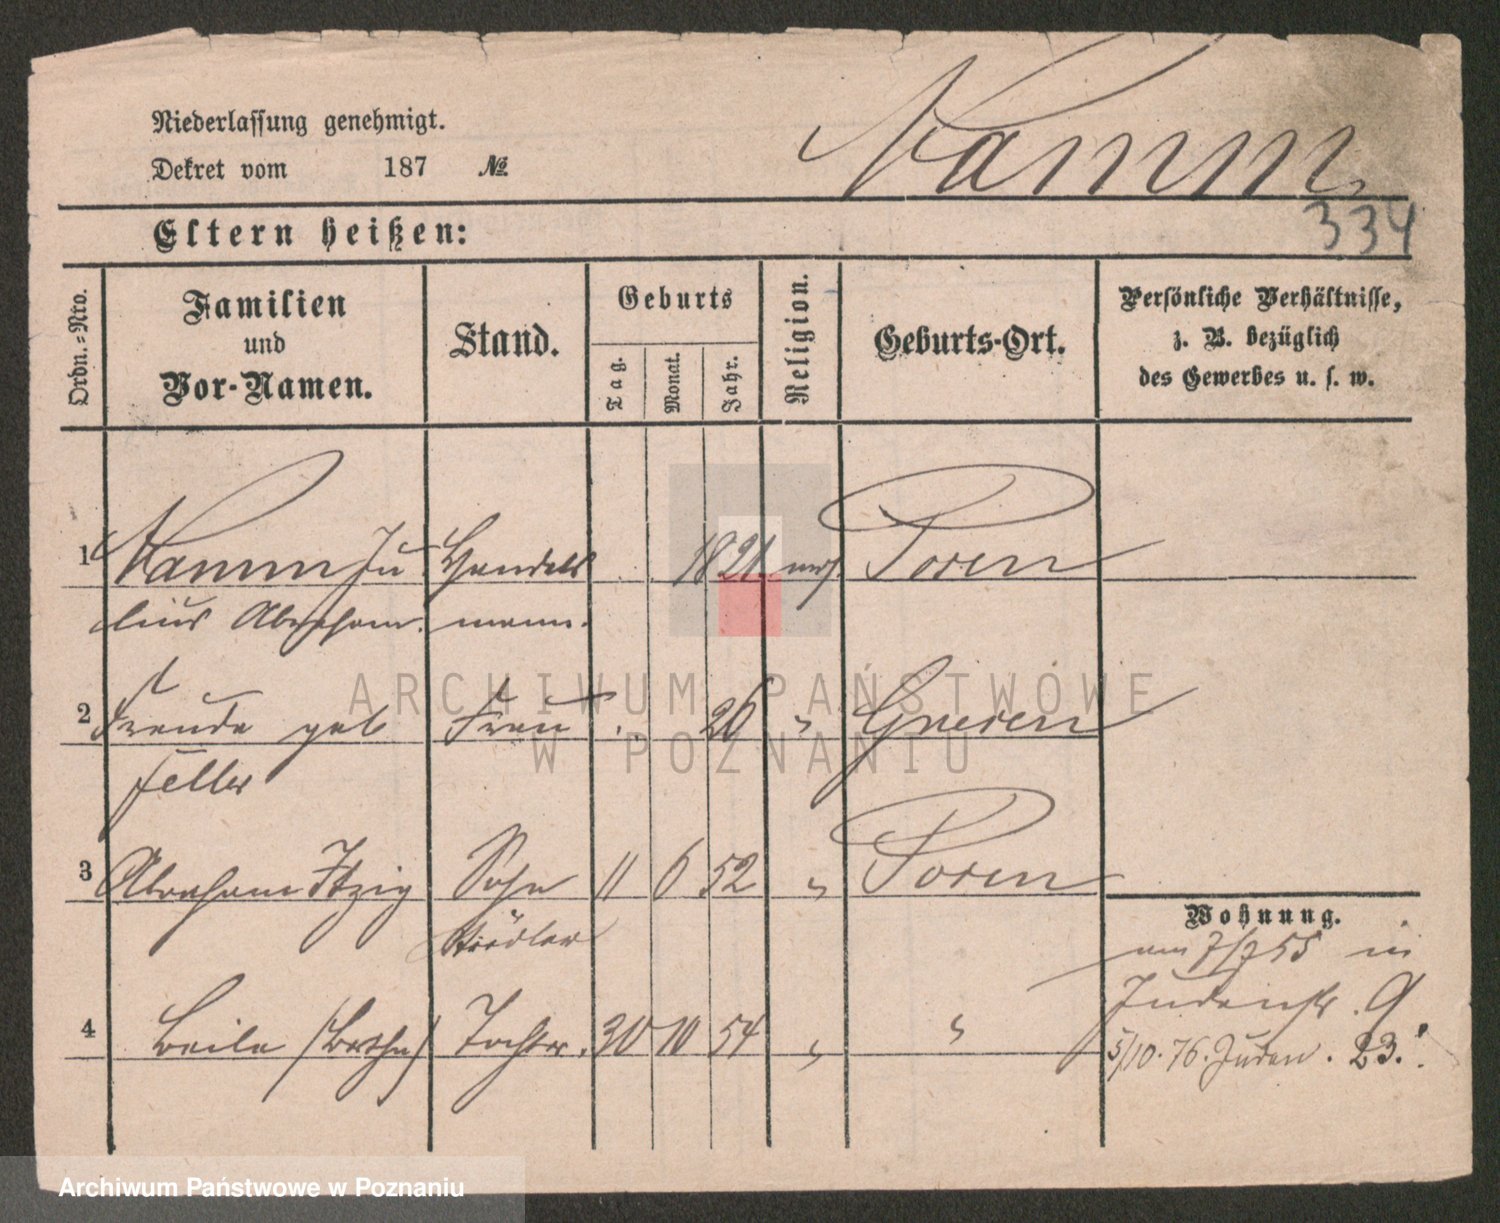 Niederlassung genehmigt.
Dekret vom 187 №
Namm
334
Eltern heißen:
Ordn.-Nro.
Familien
und
Vor-Namen.
Stand.
Geburts
Tag.
Monat.
Jahr.
Religion.
Geburts-Ort.
Persönliche Verhältnisse,
z. B. bezüglich
des Gewerbes u. s. w.
1 Namm Ju Handels 1821 mos. Posen
lius Abraham. mann.
2 Freude geb Frau 26 " Gnesen
Feller
3 Abraham Itzig Sohn 11 6 52 " Posen
Wohnung.
am 7/7 55 in
4 Beile (Bertha) Tochter. 30 10 54 " "
Judenstr. 9
5/10. 76. Juden. 23.
ARCHIWUM PAŃSTWOWE
W POZNANIU
Archiwum Państwowe w Poznaniu